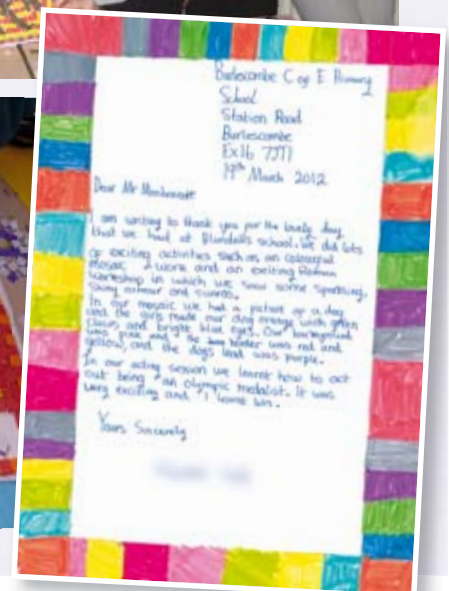 Burlescombe C of E Primary
School
Station Road
Burlescombe
Ex16 7JJ
19th March 2012
Dear Mr
I am writing to thank you for the lovely day
that we had at Blundells school. We did lots
of exciting activities such as, an colourful
mosaic work and an exciting Roman
workshop in which we saw some sparkling,
shiny armour and swords.
In our mosaic we had a picture of a dog
and the girls made our dog orange with green
claws and bright blue eyes. Our background
was pink and the border was red and
yellow, and the dogs lead was purple.
In our acting session we learnt how to act
out being an olympic medalist. It was
very exciting and I
Yours Sincerely